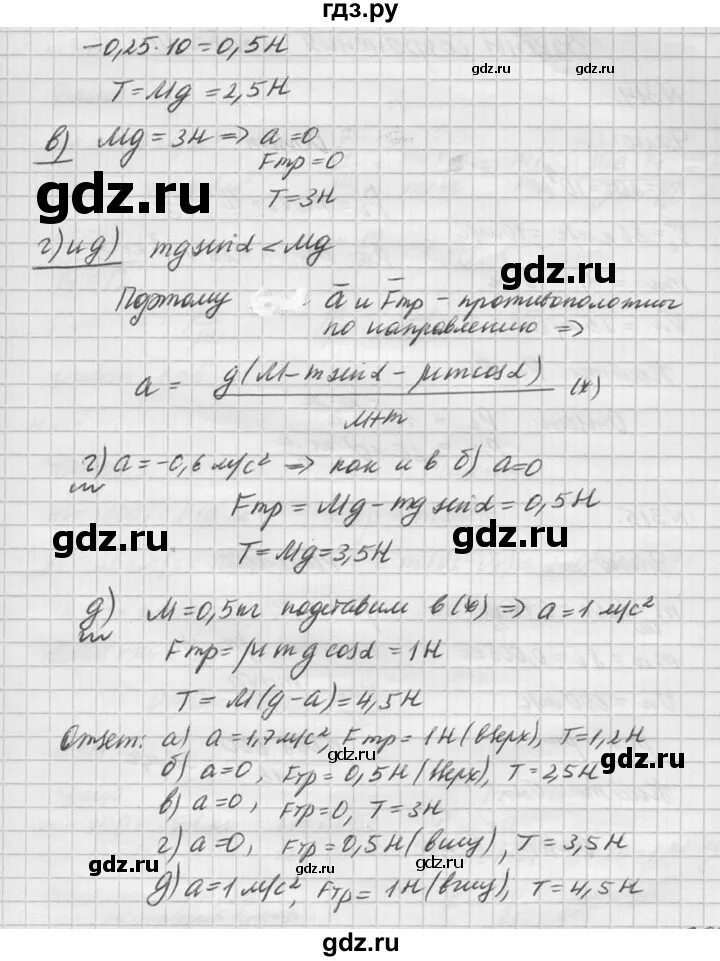 гдз.ру
−0,25·10=0,5Н
gdz.ru gdz.ru
T=Mg=2,5Н
в) Mg=3Н ⇒ a=0
Fтр=0
gdz.ru gdz.ru
T=3Н
г) и д) mg sinα < Mg
Поэтому a̅ и F̅тр − противоположны
по направлению ⇒
a = g(M−m sinα − μm cosα) / M+m (*)
г) a=−0,6 м/с² ⇒ как и в б) a=0
gdz.ru
Fтр = Mg − mg sinα = 0,5Н
gdz.ru gdz.ru
T=Mg=3,5Н
д) M=0,5кг подставим в (*) ⇒ a=1 м/с²
Fтр=μmg cosα = 1Н
gdz.ru gdz.ru
T = M(g−a)=4,5Н
Ответ: а) a=1,7м/с², Fтр=1Н(вверх), T=1,2Н
gdz.ru
б) a=0, Fтр=0,5Н(вверх), T=2,5Н
gdz.ru
в) a=0, Fтр=0, T=3Н
г) a=0, Fтр=0,5Н(вниз), T=3,5Н
gdz.ru gdz.ru
д) a=1м/с², Fтр=1Н(вниз), T=4,5Н
gdz.ru
gdz.ru